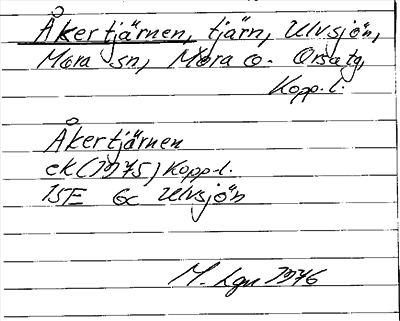 Åkertjärnen, tjärn, Ulvsjön,
Mora sn, Mora o. Orsa tg,
Kopp. l.
Åkertjärnen
ek (1975) Kopp-l.
15E 6c Ulvsjön
M. Lgn 1976